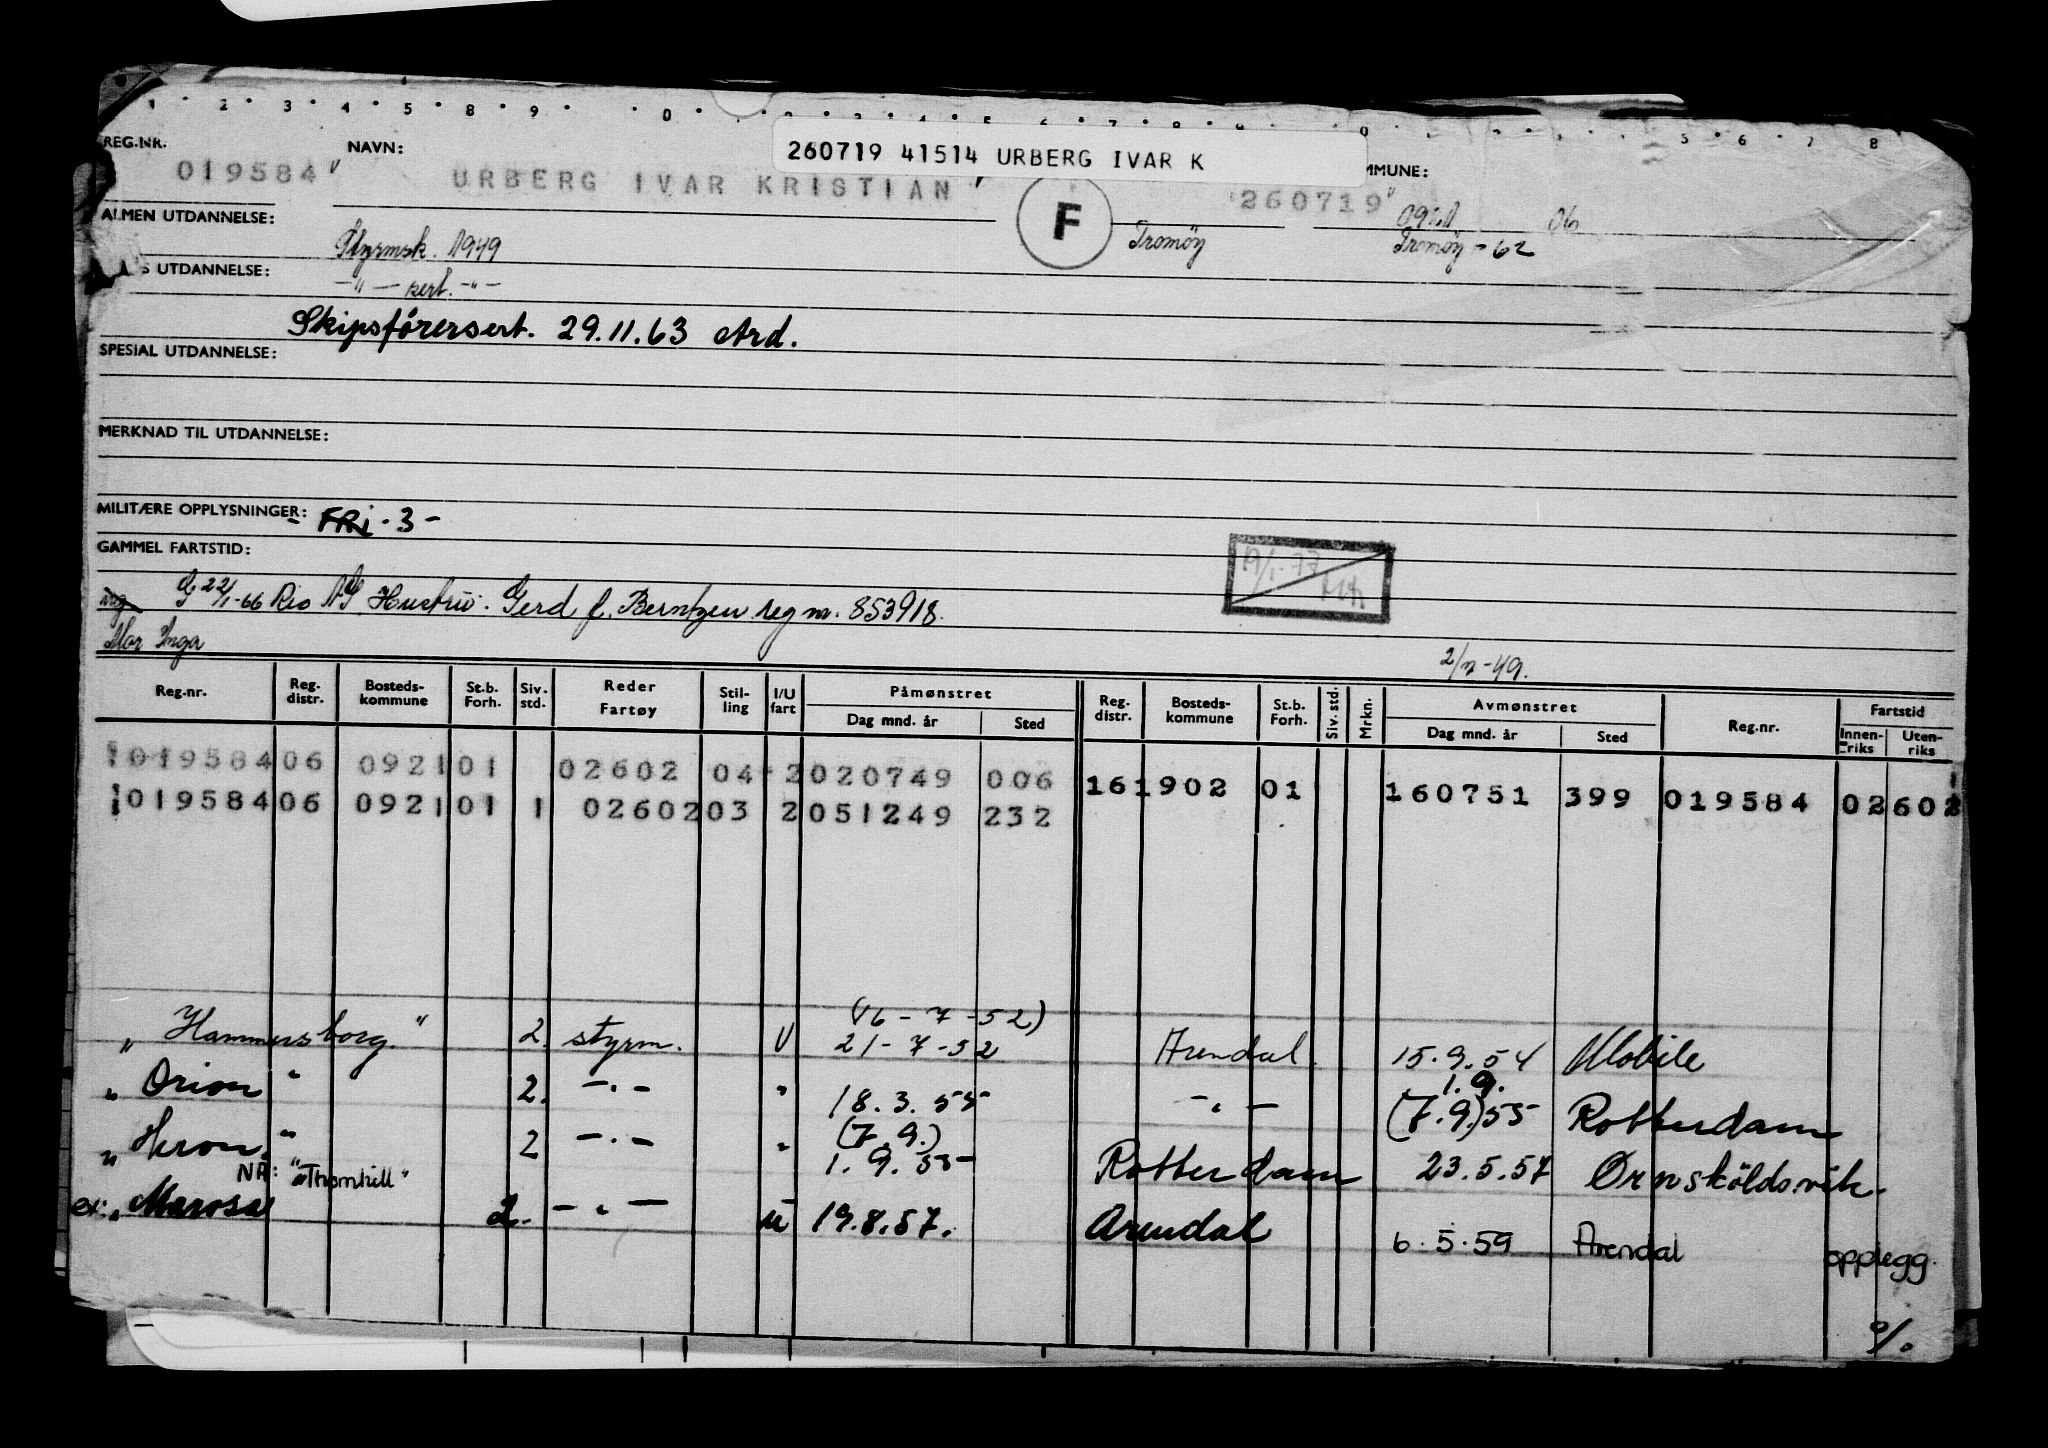 1 2 3 4 5 6 7 8 9 0
5 6 7 8
REG.NR. NAVN: 260719 41514 URBERG IVAR K MMUNE:
019584 URBERG IVAR KRISTIAN F 260719 06
ALMEN UTDANNELSE: Styrmsk. 1949 Tromøy Tromøy - 62
S UTDANNELSE: —"— sert. -"-
Skipsförersert. 29.11.63 Ard.
SPESIAL UTDANNELSE:
MERKNAD TIL UTDANNELSE:
MILITÆRE OPPLYSNINGER: - FRi - 3 -
GAMMEL FARTSTID: 19/1-77
G 22/1-66 Rio Hustru: Gerd f. Berntzen reg nr. 853918.
Mor Inga 2/7-49.
Reg.nr. Reg. distr. Bosteds-kommune St.b. Forh. Siv. std. Reder Fartøy Stil-ling I/U fart Påmønstret Dag mnd. år Sted Reg. distr. Bosteds-kommune St.b. Forh. Siv. std. Mrkn. Avmønstret Dag mnd. år Sted Reg.nr. Fartstid Innen-riks Uten-riks
019584 06 0921 01 02602 04 2 020749 006 161902 01 160751 399 019584 02602
019584 06 0921 01 1 02602 03 2 051249 232
(16-7-52)
„Hammersborg." 2. styrm. U 21-7-52 Arendal. 15.9.54 Mobile
1.9.
„Orion" 2. —.— " 18.3.55 —.— (7.9.)55 Rotterdam
(7.9.)
„Heron" 2 —.— " 1.9.55 Rotterdam 23.5.57 Ornsköldsvik.
NÅ: "Thornhill"
ex: „Marosa 2. —.— u 19.8.57. Arendal 6.5.59 Arendal opplegg.
o/.